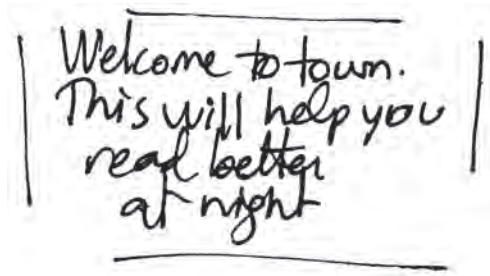 Welcome to town.
This will help you
read better
at night